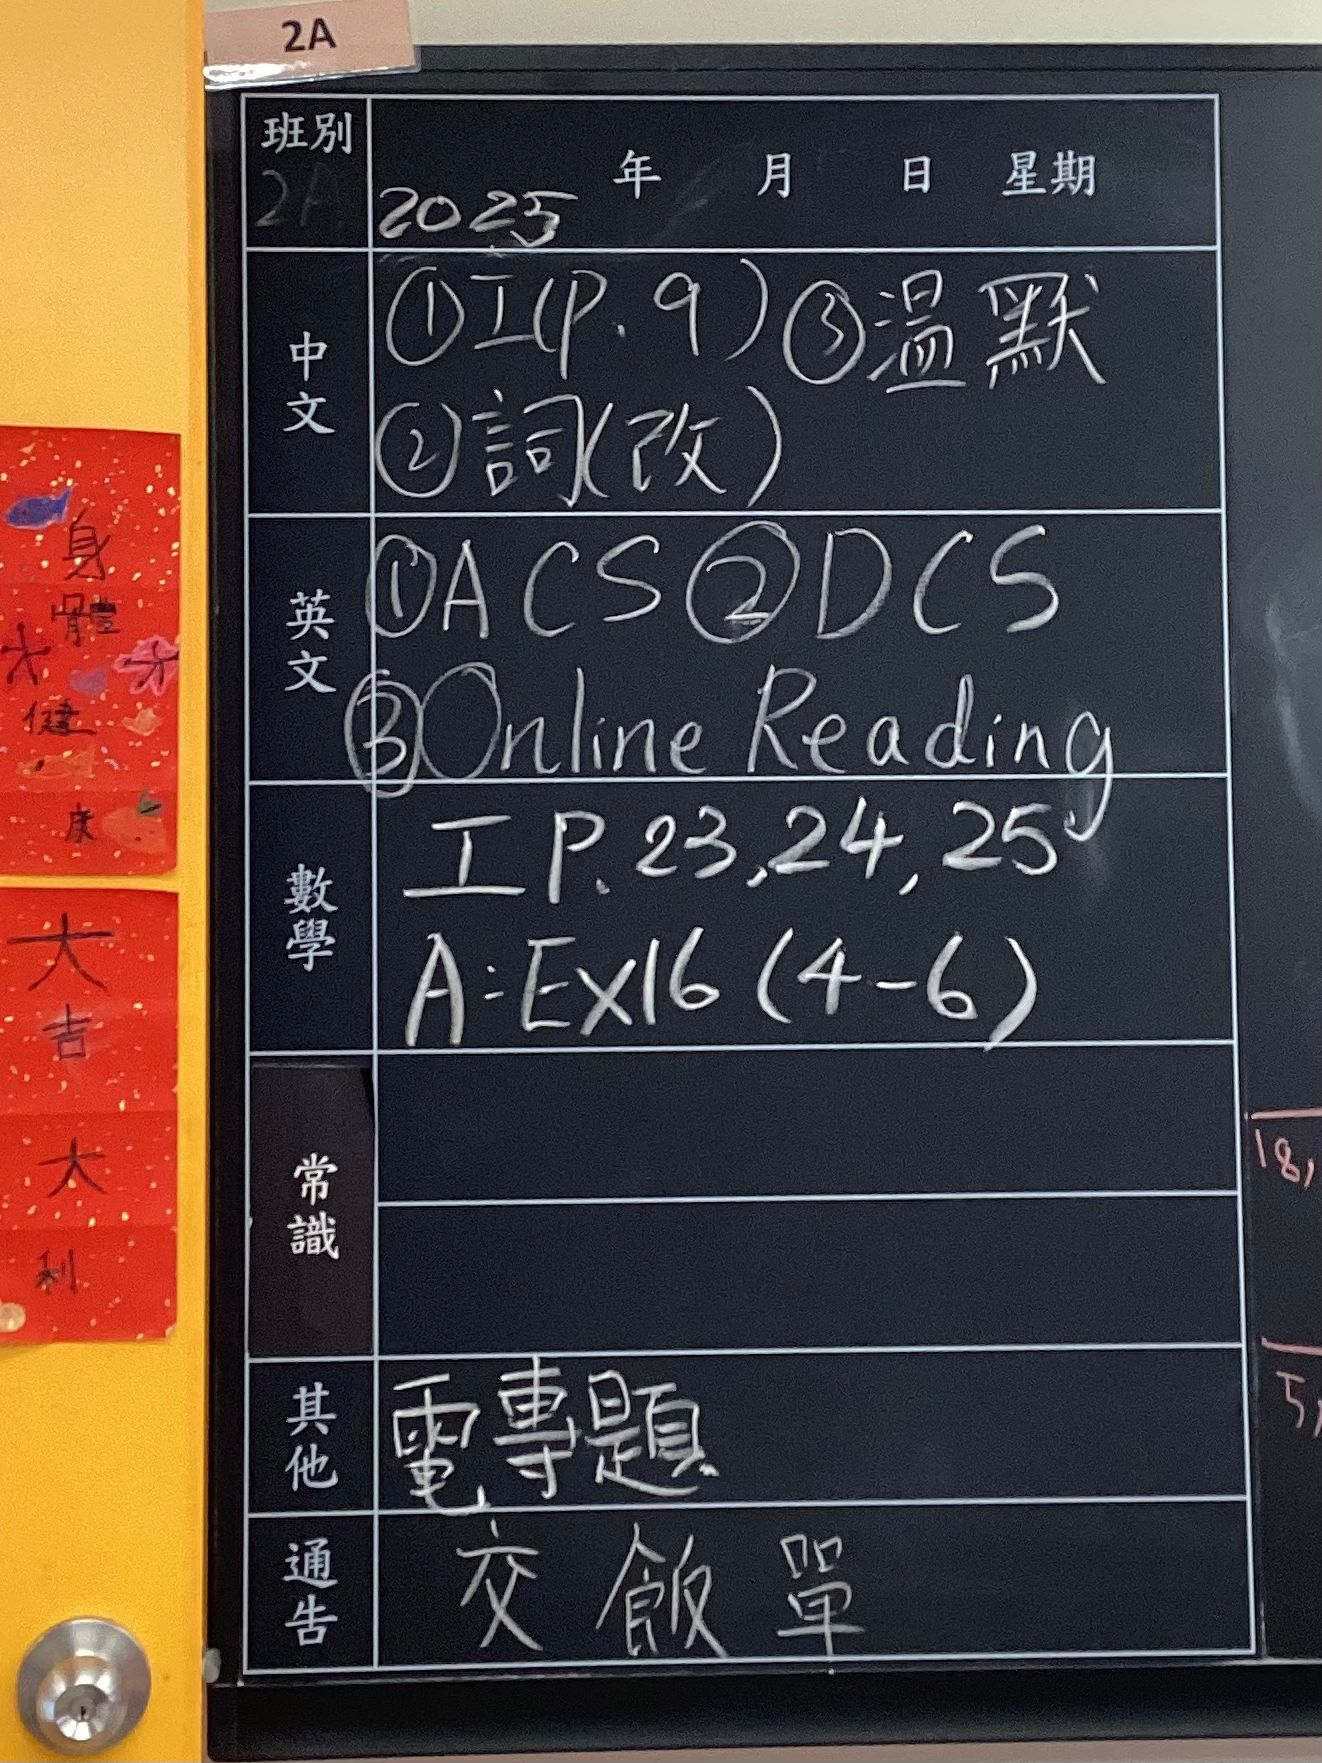 2A
班別 年 月 日 星期
2A 2025
中文
①工(P.9) ③溫默
②詞(改)
英文
①ACS ②DCS
③Online Reading
數學
工 P.23,24,25
A:Ex16 (4-6)
常識
其他
電專題
通告
交飯單
身體健康
大吉大利
18,
5,